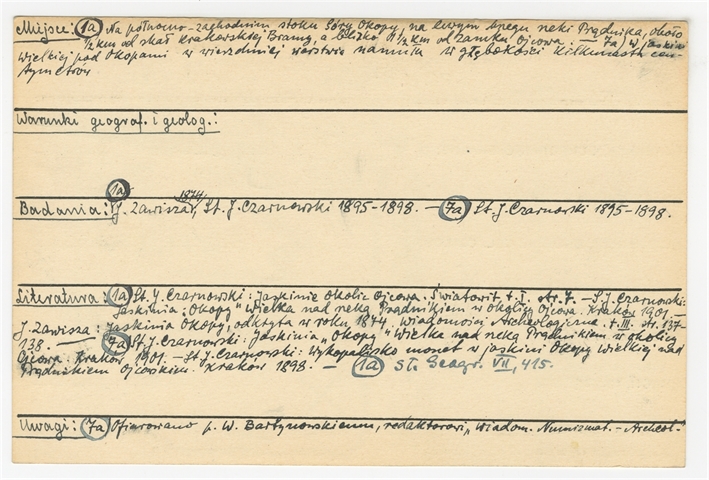 Miejsce: (1a) Na północno-zachodnim stoku Góry Okopy, na lewym brzegu rzeki Prądnika, około
1/2 km od skał Krakowskiej Bramy, a blizko 1 1/2 km od Zamku Ojcowa. — 7a) W jaskini
Wielkiej pod Okopami w wierzchniej warstwie namułu w głębokości kilkunastu cen-
tymetrów
Warunki geograf. i geolog.:
(1a) 1874
Badania: J. Zawisza, St. J. Czarnowski 1895-1898. — (7a) St. J. Czarnowski 1895-1898.
Literatura: (1a) St. J. Czarnowski: Jaskinie okolic Ojcowa. Światowit, t. I. str. 7. — S. J. Czarnowski:
Jaskinia „Okopy" Wielka nad rzeką Prądnikiem w okolicy Ojcowa. Kraków 1901. —
J. Zawisza: Jaskinia Okopy, odkryta w roku 1874, Wiadomości Archeologiczne. t. III. str. 137-
138. — (7a) St. J. Czarnowski: Jaskinia „Okopy" Wielka nad rzeką Prądnikiem w okolicy
Ojcowa. Kraków 1901. — St. J. Czarnowski: Wykopalisko monet w jaskini Okopy Wielkiej nad
Prądnikiem Ojcowskim. Kraków 1898. — (1a) Sł. Geogr. VII, 415.
Uwagi: (7a) Ofiarowano p. W. Bartynowskiemu, redaktorowi „Wiadom. Numizmat. - Archeol."